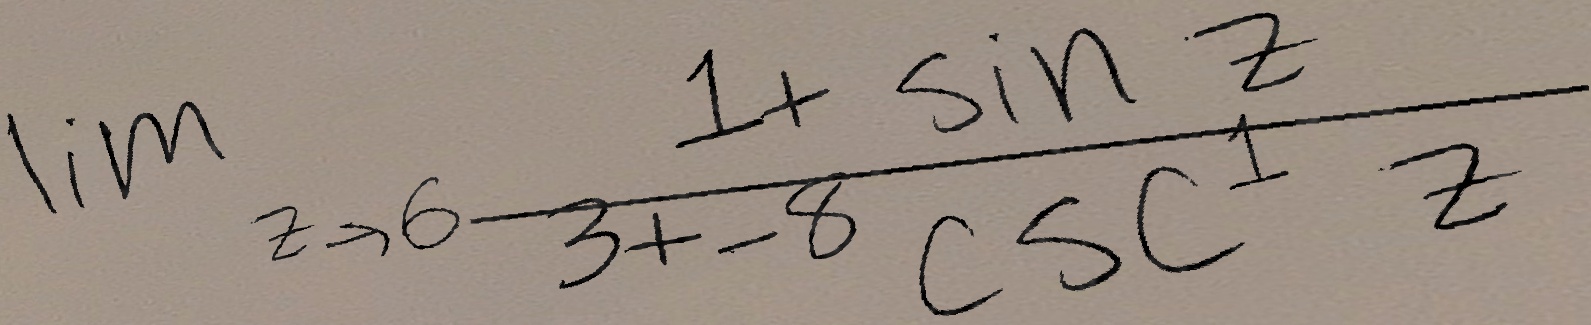 \lim_{z \to 6} \frac{1 + \sin z}{3 + -8 \csc^1 z}